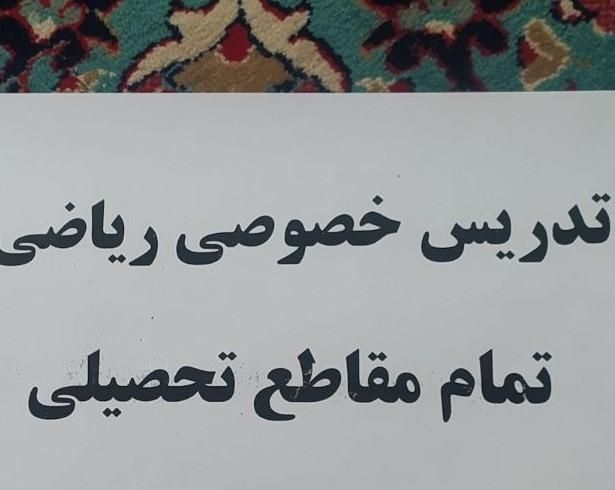 تدریس خصوصی ریاضی
تمام مقاطع تحصیلی